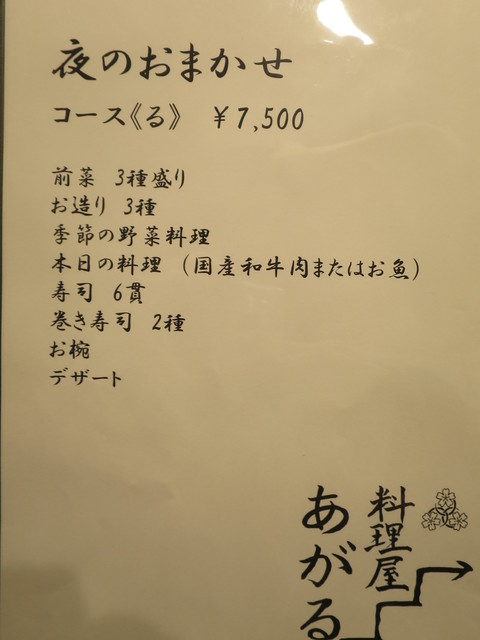 夜のおまかせ
コース《る》 ￥7,500
前菜 3種盛り
お造り 3種
季節の野菜料理
本日の料理 (国産和牛肉またはお魚)
寿司 6貫
巻き寿司 2種
お椀
デザート
料理屋
あがる